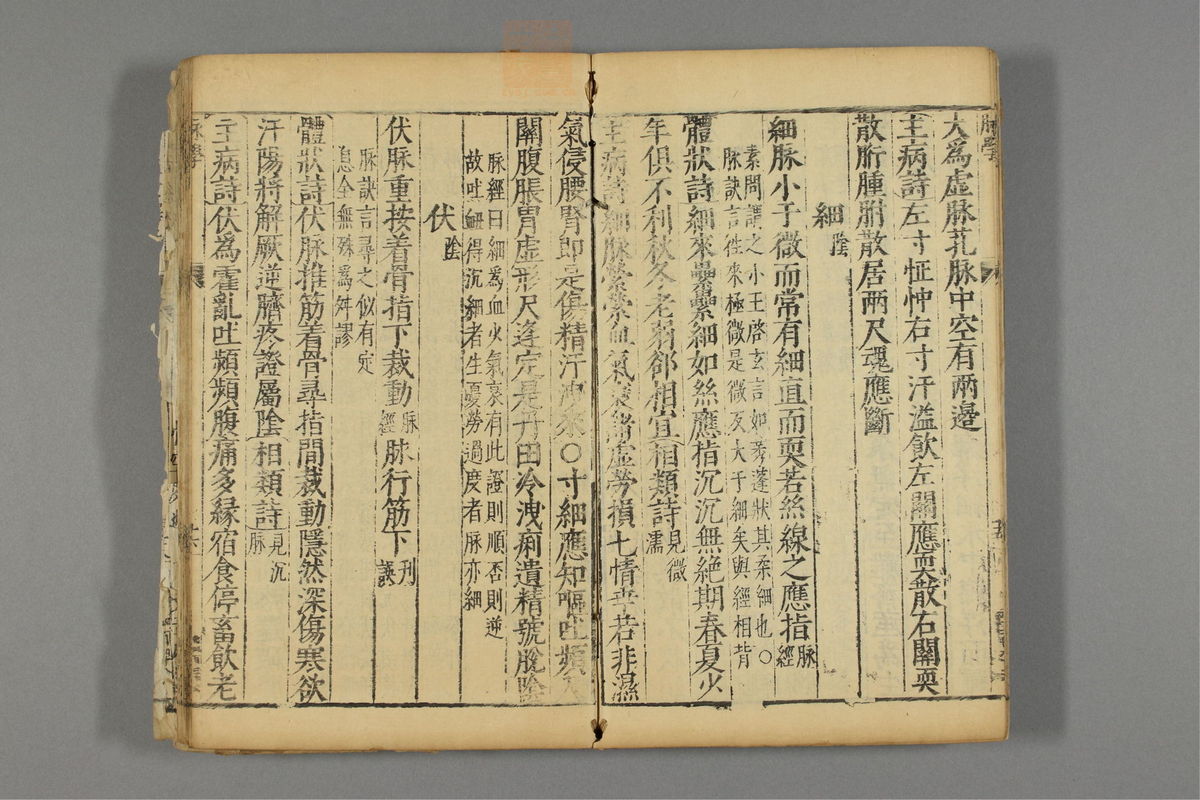 脉學
大為虛脉芤脉中空有兩邊
主病詩左寸怔忡右寸汗溢飲左關應耎散右關耎
散䯒腫胕散居兩尺魂應斷
細陰
細脉小于微而常有細直而耎若絲線之應指脉經
素問謂之小王啓玄言如莠蓬狀其柔細也○
脉訣言徃來極微是微反大于細矣與經相背
體狀詩細來纍纍細如絲應指沉沉無絶期春夏少
年俱不利秋冬老弱卻相宜相類詩見微濡
主病詩細脉縈縈血氣衰諸虛勞損七情乖若非濕
氣侵腰腎即是傷精汗洩來○寸細應知嘔吐頻入
關腹脹胃虛形尺逢定是丹田冷洩痢遺精號脫陰
脉經曰細為血少氣衰有此證則順否則逆
故吐衄得沉細者生憂勞過度者脉亦細
伏陰
伏脉重按着骨指下裁動脉經脉行筋下刊誤
脉訣言尋之似有定
息全無殊為舛謬
體狀詩伏脉推筋着骨尋指間裁動隱然深傷寒欲
汗陽將解厥逆臍疼證屬陰相類詩見沉脉
主病詩伏為霍亂吐頻頻腹痛多緣宿食停畜飲老
脉學